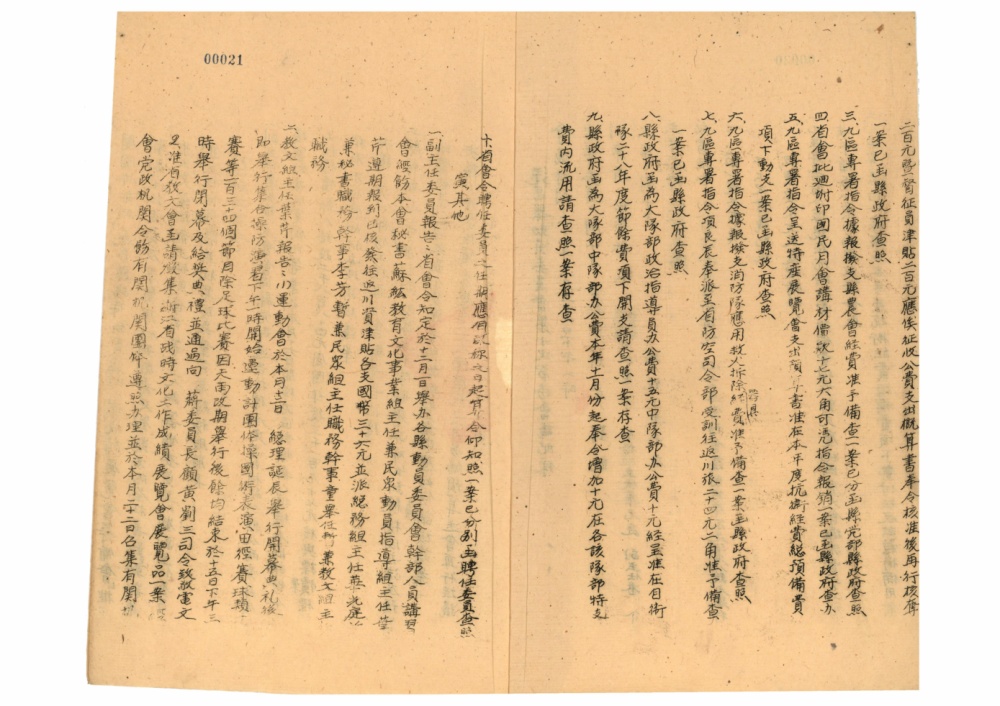 二百元暨督征員津貼二百元應俟征收公費支出概算書奉令核准後再行核奪
一案已函縣政府查照
三、九區專署指令據報撥支縣農會經費准予備查一案已分函縣党部縣政府查照
四、省會代週刊印國民月會講材價款十七元六角可憑指令報銷一案已函縣政府查办
五、九區專署指令呈送特產展覽會支出預算書准在本年度抗衛經費總預備費
項下動支一案已函縣政府查照
六、九區專署指令據報撥支消防隊應用救火拆除器具經費准予備查一案函縣政府查照
七、九區專署指令項良辰奉派至省防空司令部受訓往返川旅二十四元二角准予備查
一案已函縣政府查照
八、縣政府函為大隊部政治指導員办公費十五元中隊部办公費十元經呈准在自衛
隊二十八年度節餘費項下開支請查照一案存查
九、縣政府函為大隊部中隊部办公費本年十月份起奉令增加十元在各該隊部特支
費內流用請查照一案存查
00021
十、省會令聘任委員之任期應用　　之日起算令仰知照一案已分別函聘任委員查照
寅、其他
一、副主任委員報告：省會令知定於十二月一日舉办各縣動員委員會幹部人員講習
會經飭本會秘書蘇　教育文化事業組主任兼民眾動員指導組主任葉
芹遵期報到已核發往返川資津貼各支國幣三十六元並派總務組主任蔡光
兼秘書職務幹事李芳暫兼民眾組主任職務幹事童舉　兼教文組主
職務
二、教文組主任葉芹報告：小運動會於本月十二日　總理誕辰舉行開幕典礼後
即舉行集合操防　下午一時開始運動計團体操國術表演田徑賽球類
賽等一百三十四個節目除足球比賽因天雨改期舉行後餘均結束於十五日下午三
時舉行閉幕及給獎典禮並通過向　蔣委員長顧黃劉三司令致敬電文
又准省教文會函請徵集浙江省戰時文化工作成績展覽會展覽品一案
會党政机關令飭有關机關團体遵照办理並於本月二十二日召集有關